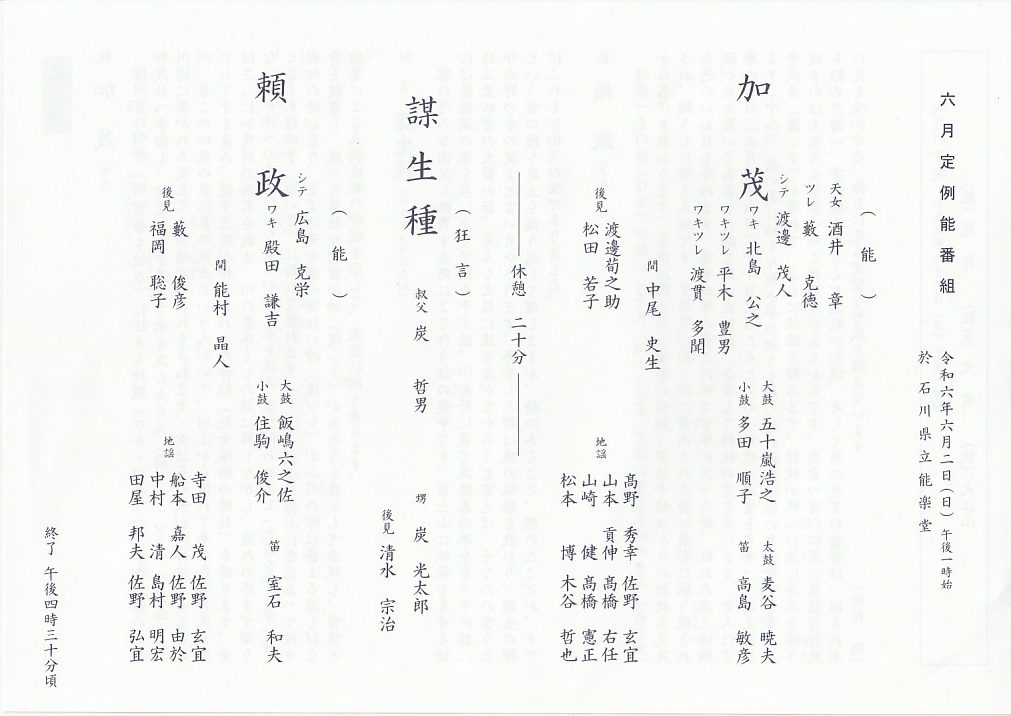 六月定例能番組
令和六年六月二日（日）午後一時始
於 石川県立能楽堂
（能）
加茂
天女 酒井 章
ツレ 藪 克徳
シテ 渡邊 茂人
ワキ 北島 公之
ワキツレ 平木 豊男
ワキツレ 渡貫 多聞
間 中尾 史生
大鼓 五十嵐浩之
小鼓 多田 順子
太鼓 麦谷 暁夫
笛 高島 敏彦
後見 渡邊荀之助
松田 若子
地謡
髙野 秀幸 佐野 玄宜
山本 貢伸 髙橋 右任
山崎 健 髙橋 憲正
松本 博 木谷 哲也
休憩 二十分
（狂言）
謀生種
叔父 炭 哲男
甥 炭 光太郎
後見 清水 宗治
（能）
頼政
シテ 広島 克栄
ワキ 殿田 謙吉
間 能村 晶人
大鼓 飯嶋六之佐
小鼓 住駒 俊介
笛 室石 和夫
後見 藪 俊彦
福岡 聡子
地謡
寺田 茂 佐野 玄宜
船本 嘉人 佐野 由於
中村 清 島村 明宏
田屋 邦夫 佐野 弘宜
終了 午後四時三十分頃